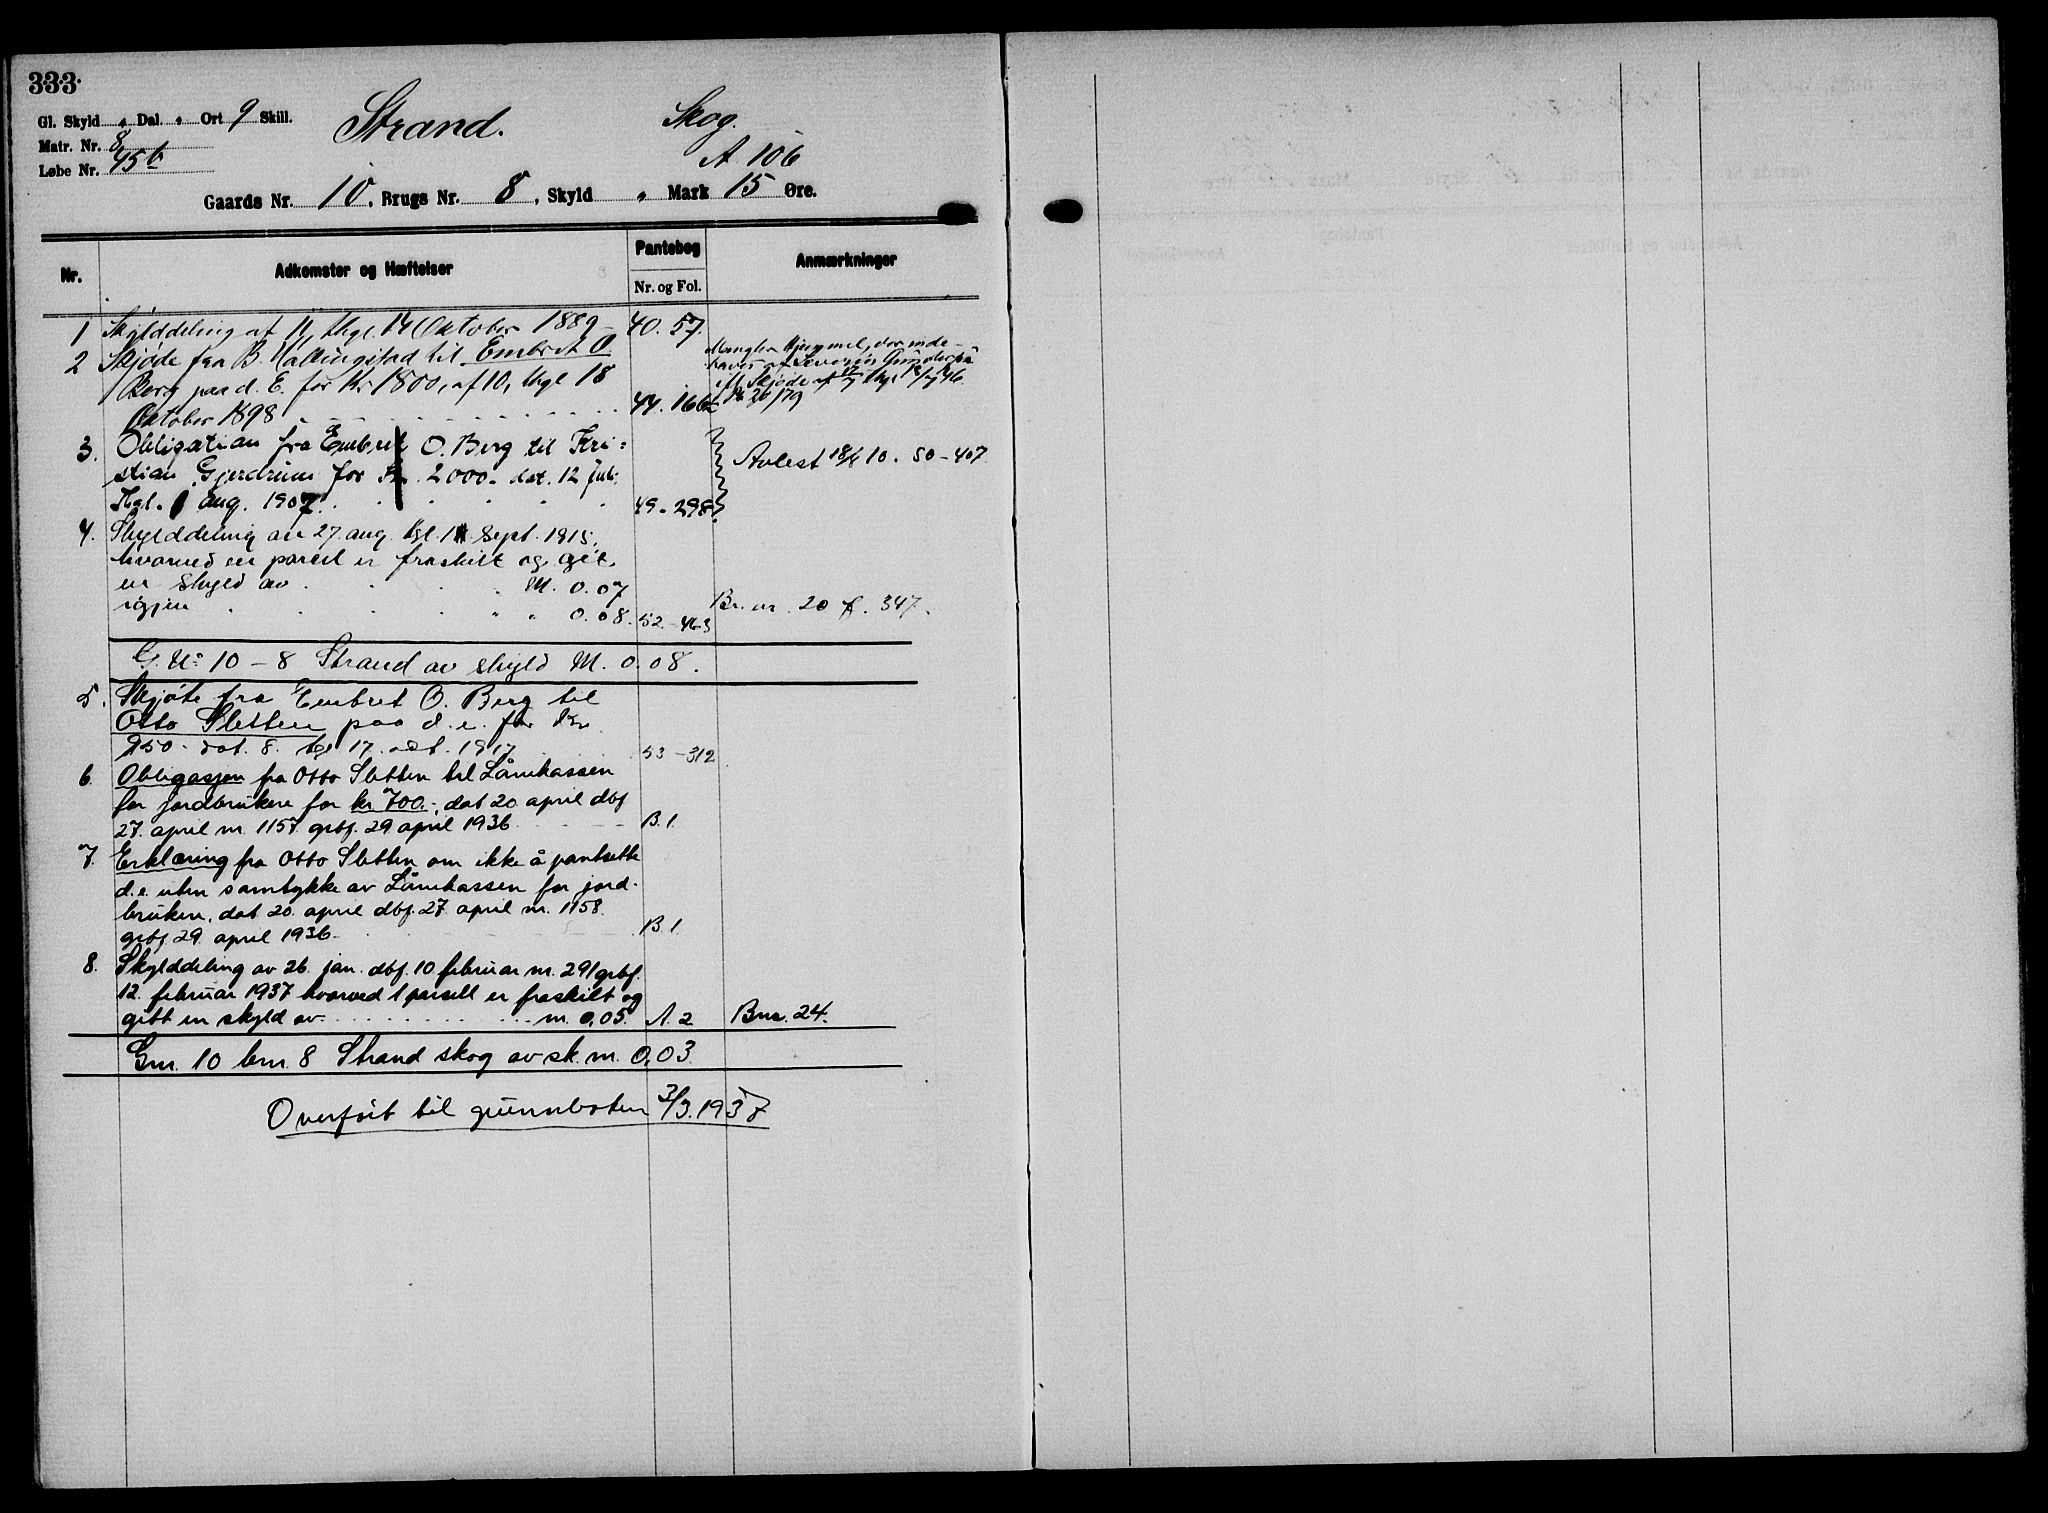 333.
Gl. Skyld " Dal. " Ort 9 Skill.
Strand.
Skog.
Matr. Nr. 8
A 106
Løbe Nr. 45b
Gaards Nr. 10, Brugs Nr. 8, Skyld " Mark 15 Øre.
Nr. Adkomster og Hæftelser Pantebog Anmærkninger
Nr. og Fol.
1 Skylddeling af 11, thgl. 14 Oktober 1889 40. 57.
2 Skjøde fra B. Hallingstad til Embret O
Berg paa d. E. for Kr 1800, af 10, thgl 18
Oktober 1898 44. 166
Mangler Hjemmel, der inde-
haves af Severin
ifl. Skjøde af
3. Obligation fra Embret O. Berg til Kri=
stian Gjerdrum for Kr. 2000.- dat. 12 juli
Thgl. 1 aug. 1907. 49-298
Avlest 18/6 10. 50-407
4. Skylddeling av 27. aug. thgl. 1 Sept. 1915,
hvorved en parcel er fraskilt og git
en Skyld av M. 0.07 Br. nr. 20 f. 347.
igjen " " 0.08. 52-463
G. No 10-8 Strand av skyld M. 0.08.
5. Skjøte fra Embret O. Berg til
Otto Sletten paa d. e. for kr
950.- dat. 8. tgl 17. okt. 1917 53-312
6. Obligasjon fra Otto Sletten til Lånekassen
for jordbrukere for kr 700.-, dat 20 april dbf
27. april nr. 1157 grbf. 29 april 1936 B. 1.
7. Erklæring fra Otto Sletten om ikke å pantsette
d.e. uten samtykke av Lånekassen for jord-
bruken. dat 20. april dbf. 27 april nr. 1158.
grbf 29. april 1936 B. 1.
8. Skylddeling av 26. jan. dbf. 10 februar nr. 291 grbf.
12. februar 1937 hvorved 1 parsell er fraskilt og
gitt en skyld av m. 0,05. A. 2 Bnr. 24.
Gnr. 10 bnr. 8 Strand skog av sk. m. 0,03.
Overført til grunnboken 2/3.1937